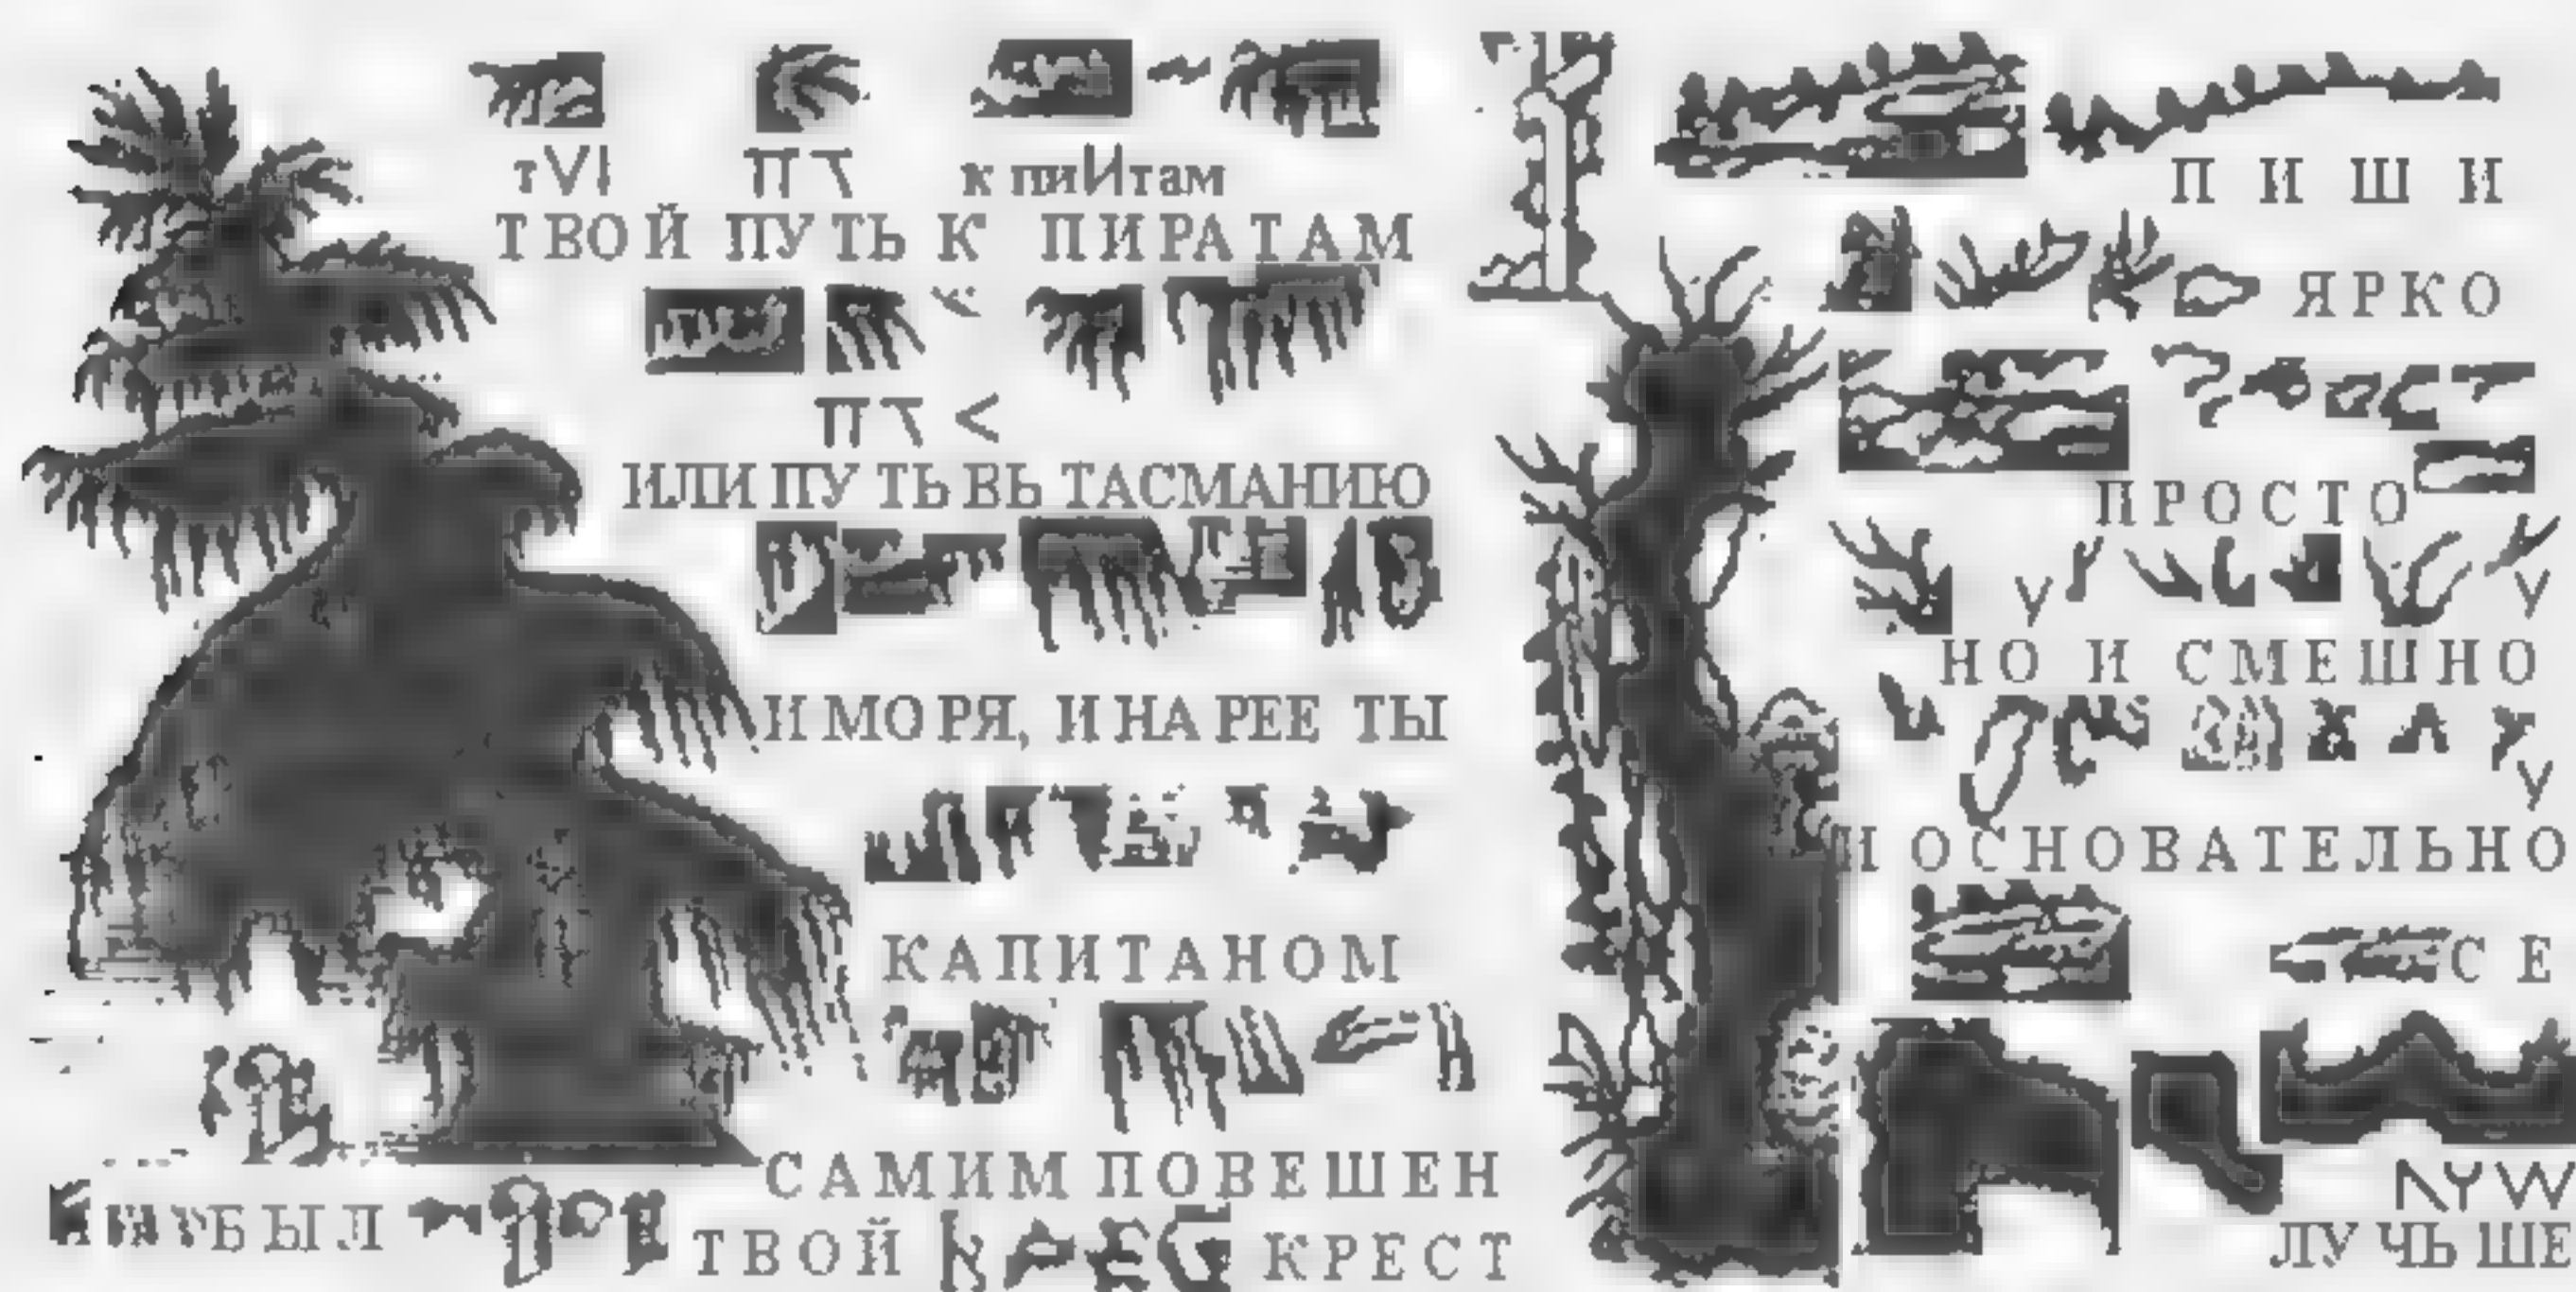 тVI ПТ к пиИтам
ТВОЙ ПУТЬ К ПИРАТАМ
ПТ <
ИЛИ ПУТЬ ВЬ ТАСМАНИЮ
И МОРЯ, И НА РЕЕ ТЫ
КАПИТАНОМ
САМИМ ПОВЕШЕН
БЫЛ ТВОЙ КРЕСТ
ПИШИ
ЯРКО
ПРОСТО
V V
НО И СМЕШНО
V
И ОСНОВАТЕЛЬНО
СЕ
ЛУЧЬШЕ